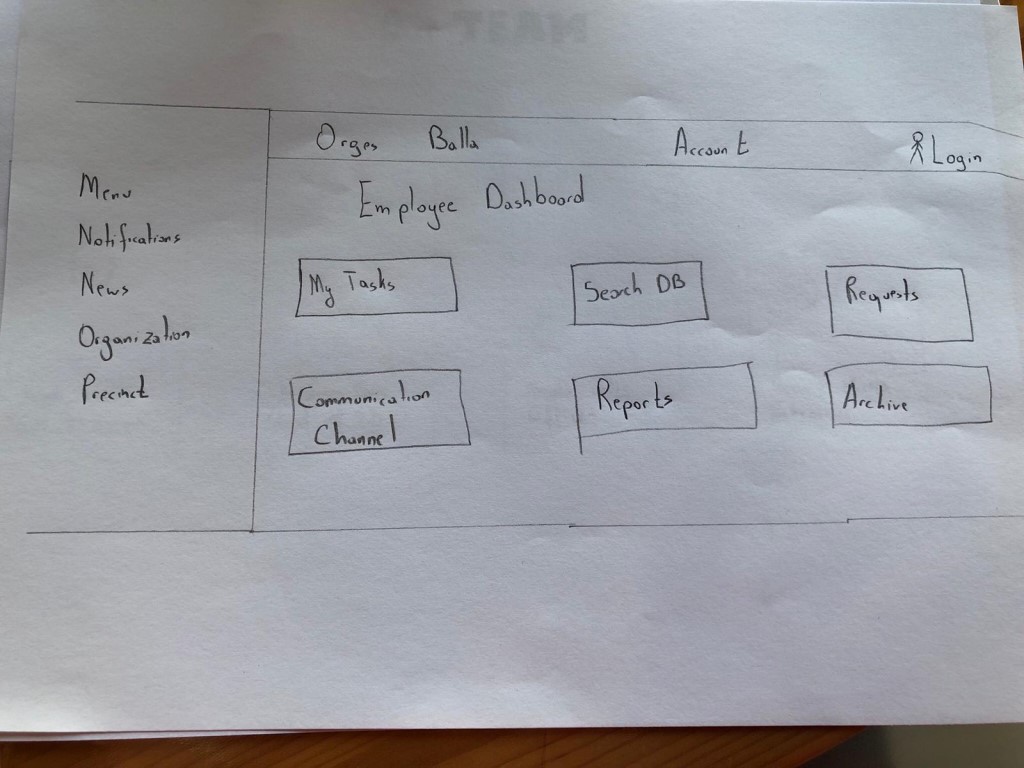 Orges Balla Account Login
Menu
Notifications
News
Organization
Precinct
Employee Dashboard
My Tasks
Search DB
Requests
Communication
Channel
Reports
Archive